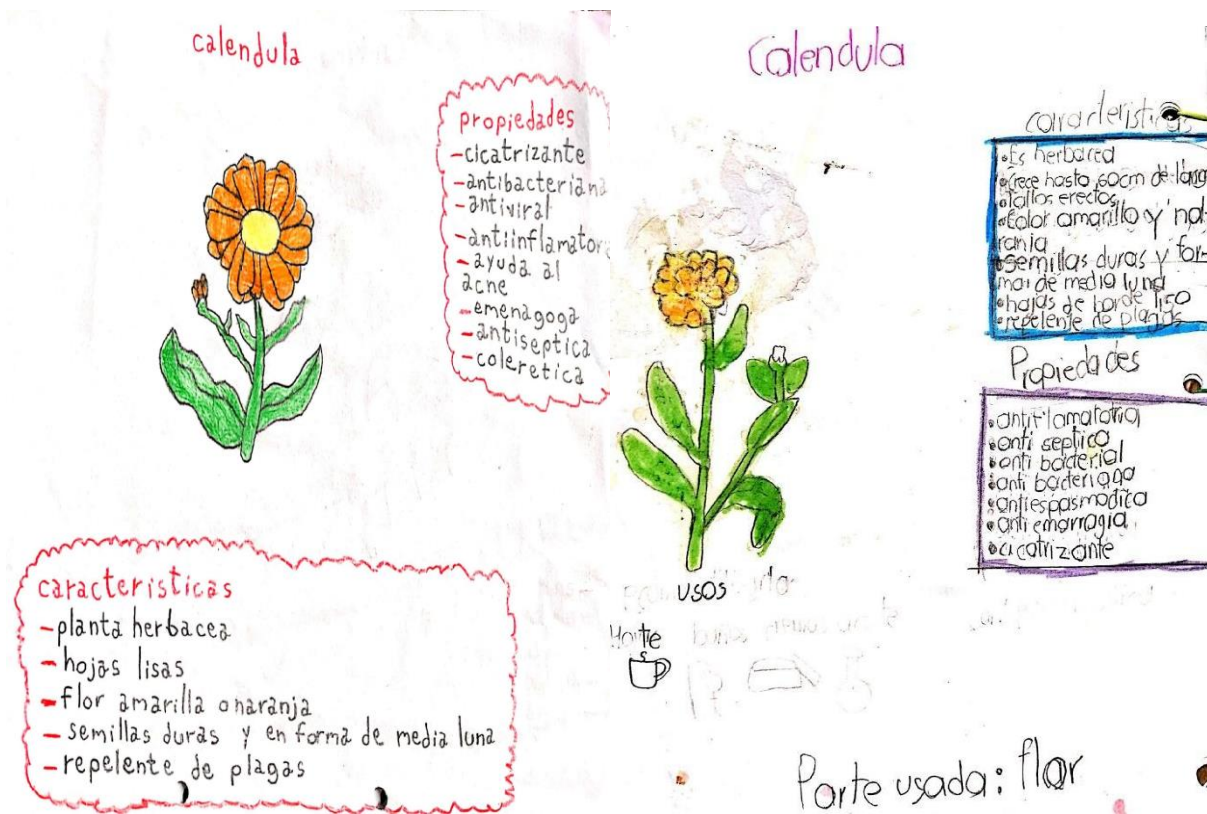 calendula
propiedades
-cicatrizante
-antibacteriana
-antiviral
-antiinflamatora
-ayuda al
acne
-emenagoga
-antiseptica
-coleretica
caracteristicas
-planta herbacea
-hojas lisas
-flor amarilla o naranja
-semillas duras y en forma de media luna
-repelente de plagas
Calendula
caracteristicas
•Es herbacea
•crece hasta 60cm de largo
•tallos erectos
•Color amarillo y na
ranja
•Semillas duras y for-
ma de media luna
•hojas de borde liso
•repelente de plagas
Propiedades
•antiflamatoria
•anti septico
•anti bacterial
•anti bacteriana
•antiespasmodica
•anti emorragia
•cicatrizante
usos
te
Parte usada: flor